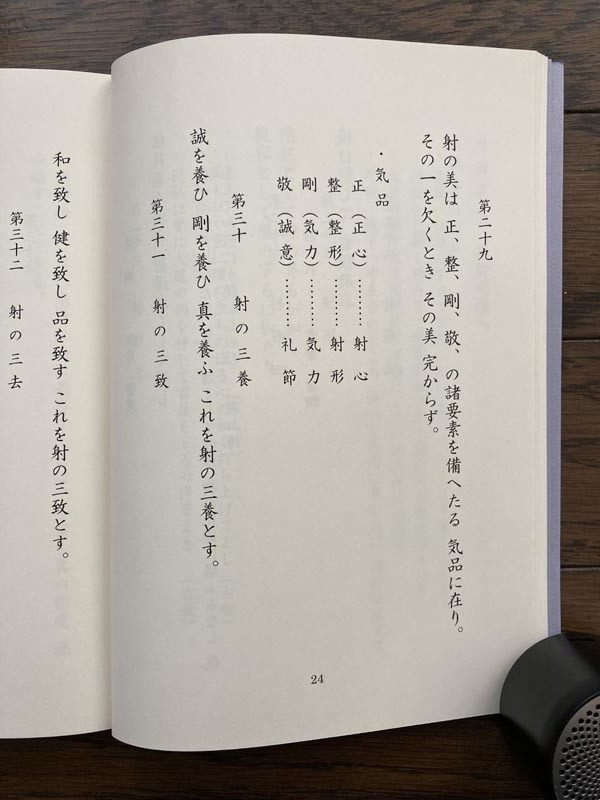 第二十九
射の美は 正、整、剛、敬、の諸要素を備へたる 気品に在り。
その一を欠くとき その美 完からず。
・気品
正(正心)………射心
整(整形)………射形
剛(気力)………気力
敬(誠意)………礼節
第三十 射の三養
誠を養ひ 剛を養ひ 真を養ふ これを射の三養とす。
第三十一 射の三致
24
和を致し 健を致し 品を致す これを射の三致とす。
第三十二 射の三去